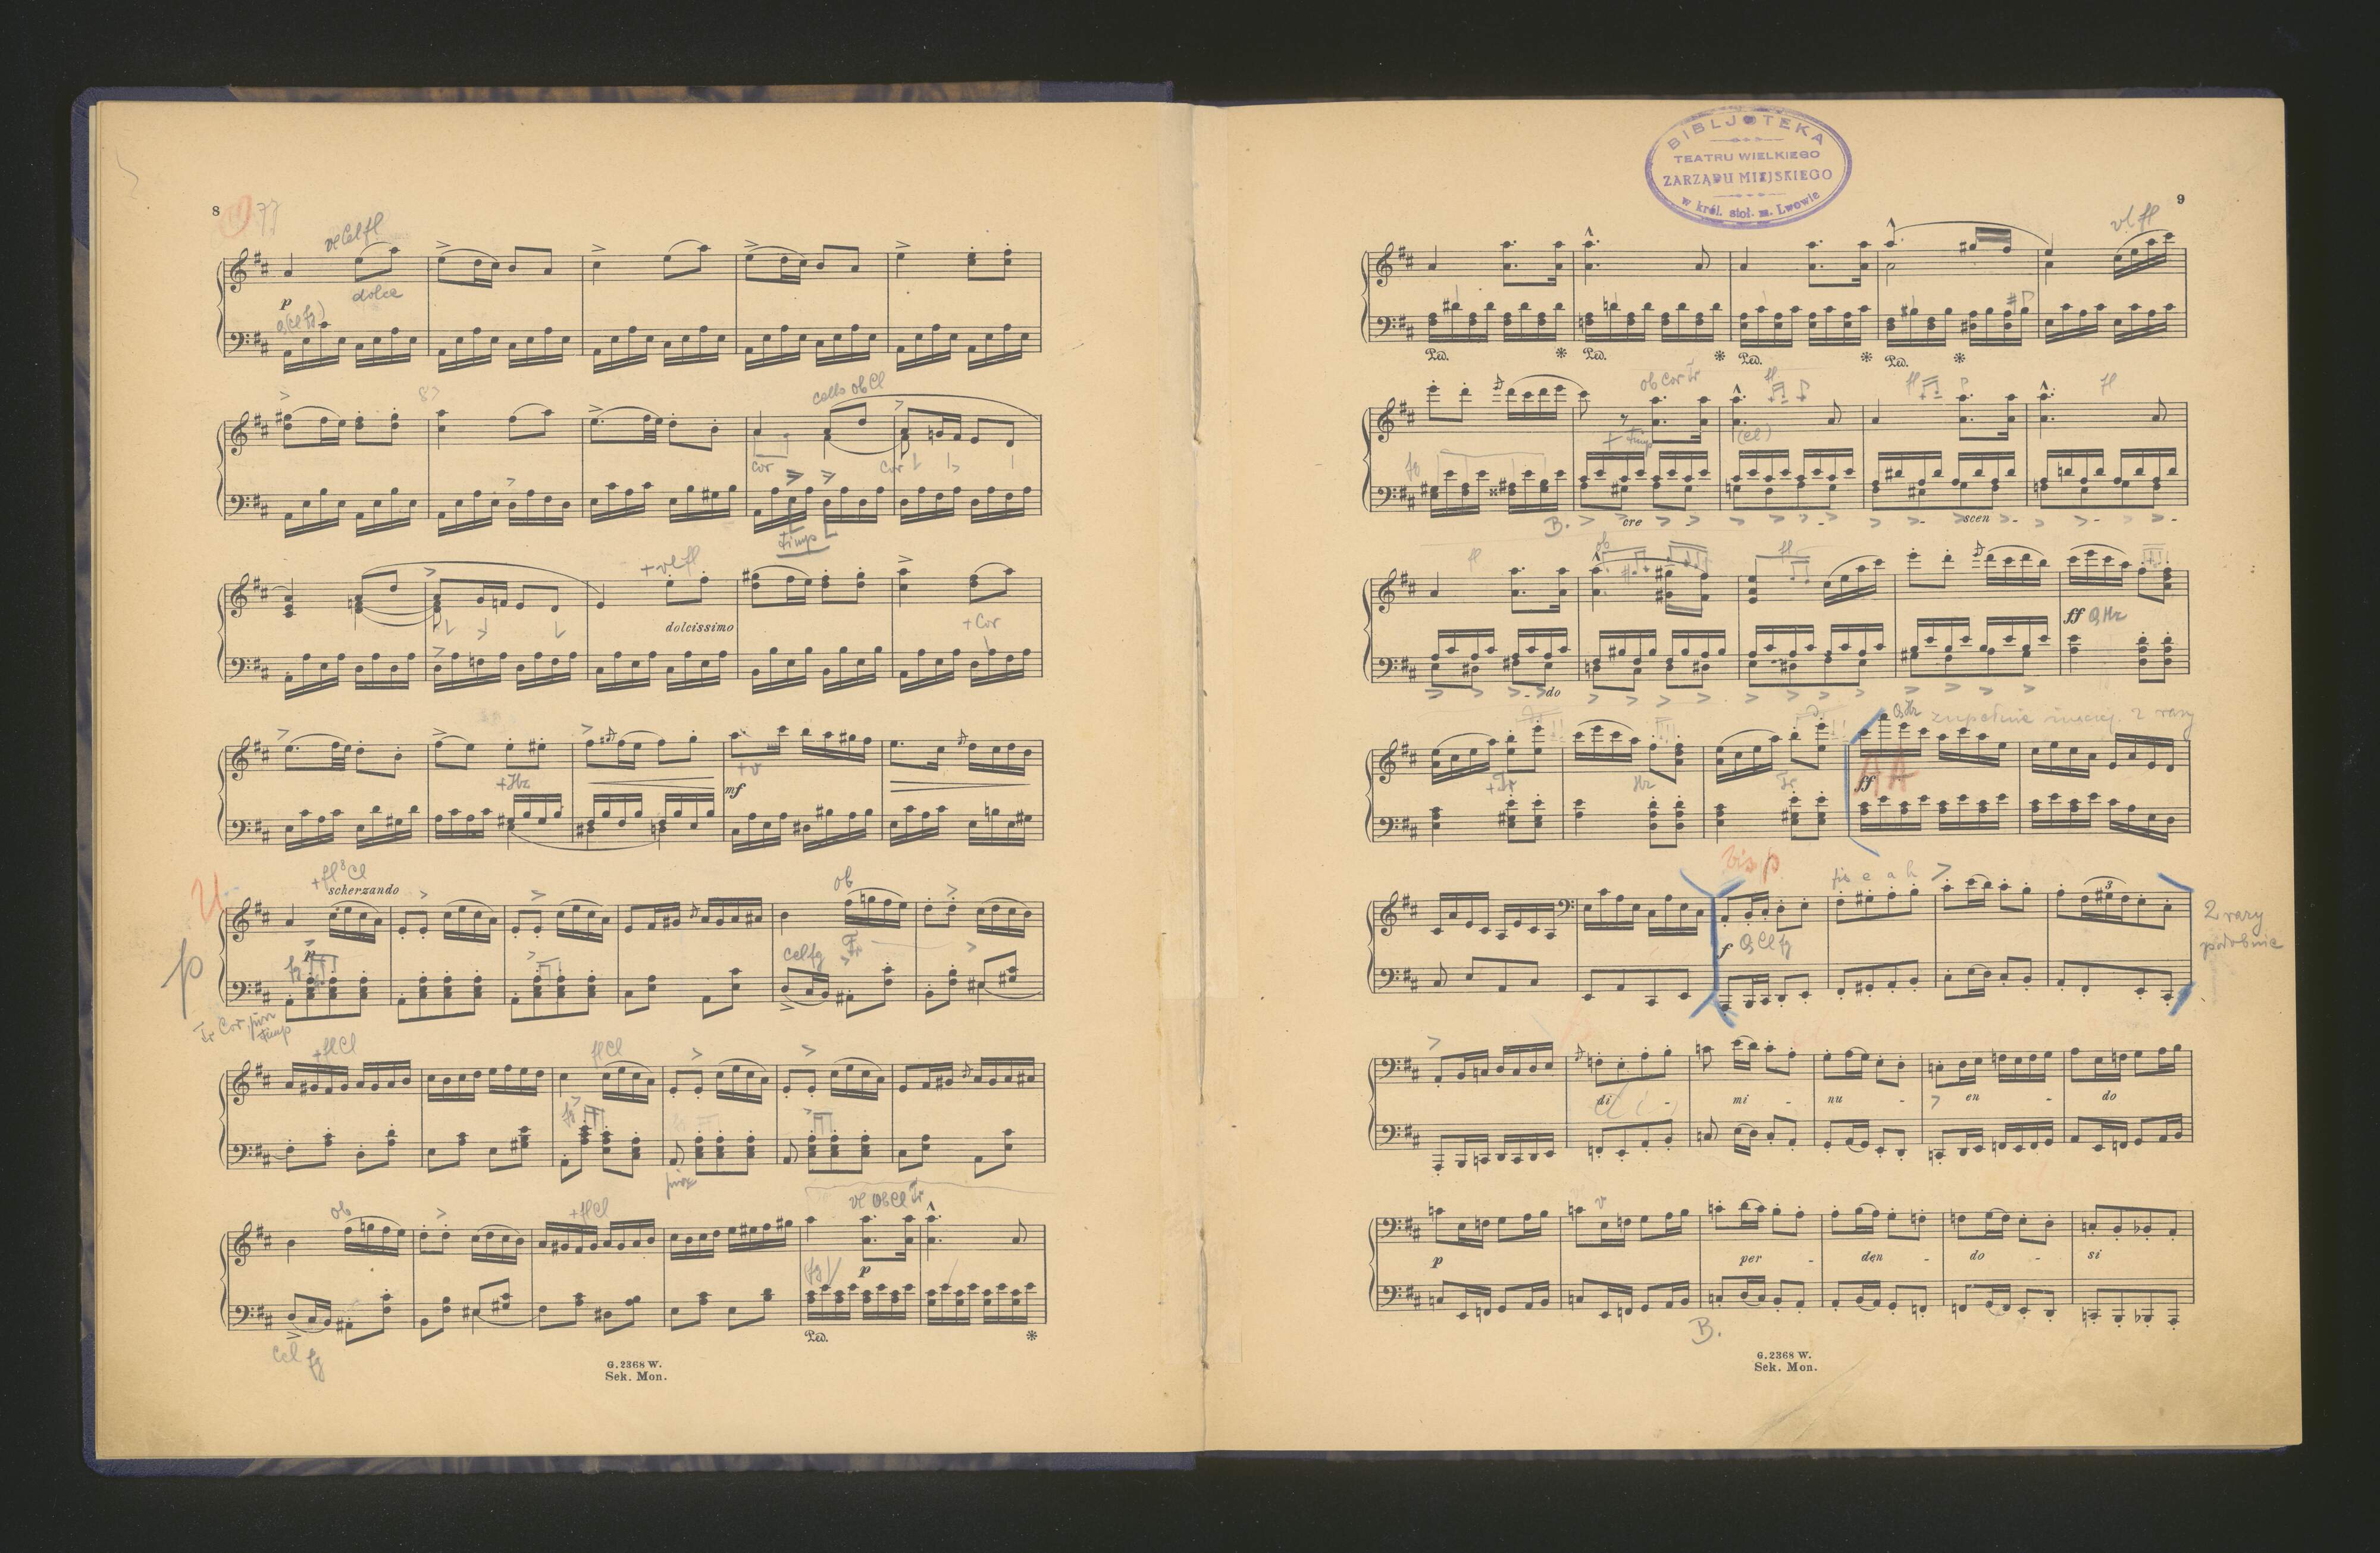 8
77
vl Cel fl
dolce
p
8
cello ob Cl
cor
cor
timp
+ vl fl
dolcissimo
+ Cor
+ Hr
mf
+ fl Cl
scherzando
ob
p
p
fg
Cel fg
Tr
Tr Cor
timp
+ fl Cl
fl Cl
fg
ob
+ fl Cl
vl Ob Cl Tr
(fg)
p
Ped. *
Cel fg
G. 2368 W.
Sek. Mon.
BIBLJOTEKA
TEATRU WIELKIEGO
ZARZĄDU MIEJSKIEGO
w król. stoł. m. Lwowie
9
vl fl
Ped. * Ped. * Ped. * Ped. *
ob Cor Tr
fl
fl
fl
+ timp
(cl)
B.
cre - - - scen - - -
fl
ob
fl
ff
- do
zupełnie inaczej 2 razy
+ Tr
Hr
Tr
ff
AA
bis p
fis e a h
f
2 razy
podobnie
di - mi - nu - en - do
p
per - den - do - si
B.
G. 2368 W.
Sek. Mon.